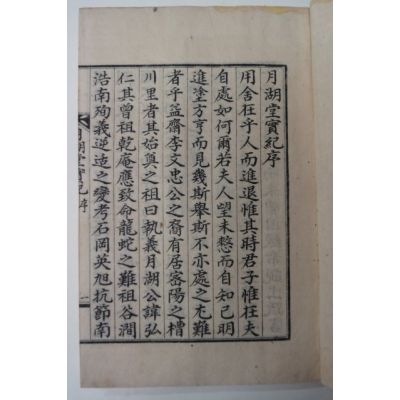 月湖堂實紀序
用舍在乎人而進退惟其時君子惟在夫
自處如何爾若夫人望未憗而自知已明
進塗方亨而見幾斯舉斯不亦處之尤難
者乎益齋李文忠公之裔有居密陽之槽
川里者其始奠之祖曰執義月湖公諱弘
仁其曾祖乾庵應致命龍蛇之難祖谷澗
浩南殉義逆适之變考石岡英旭抗節南
月湖堂實紀 序 一